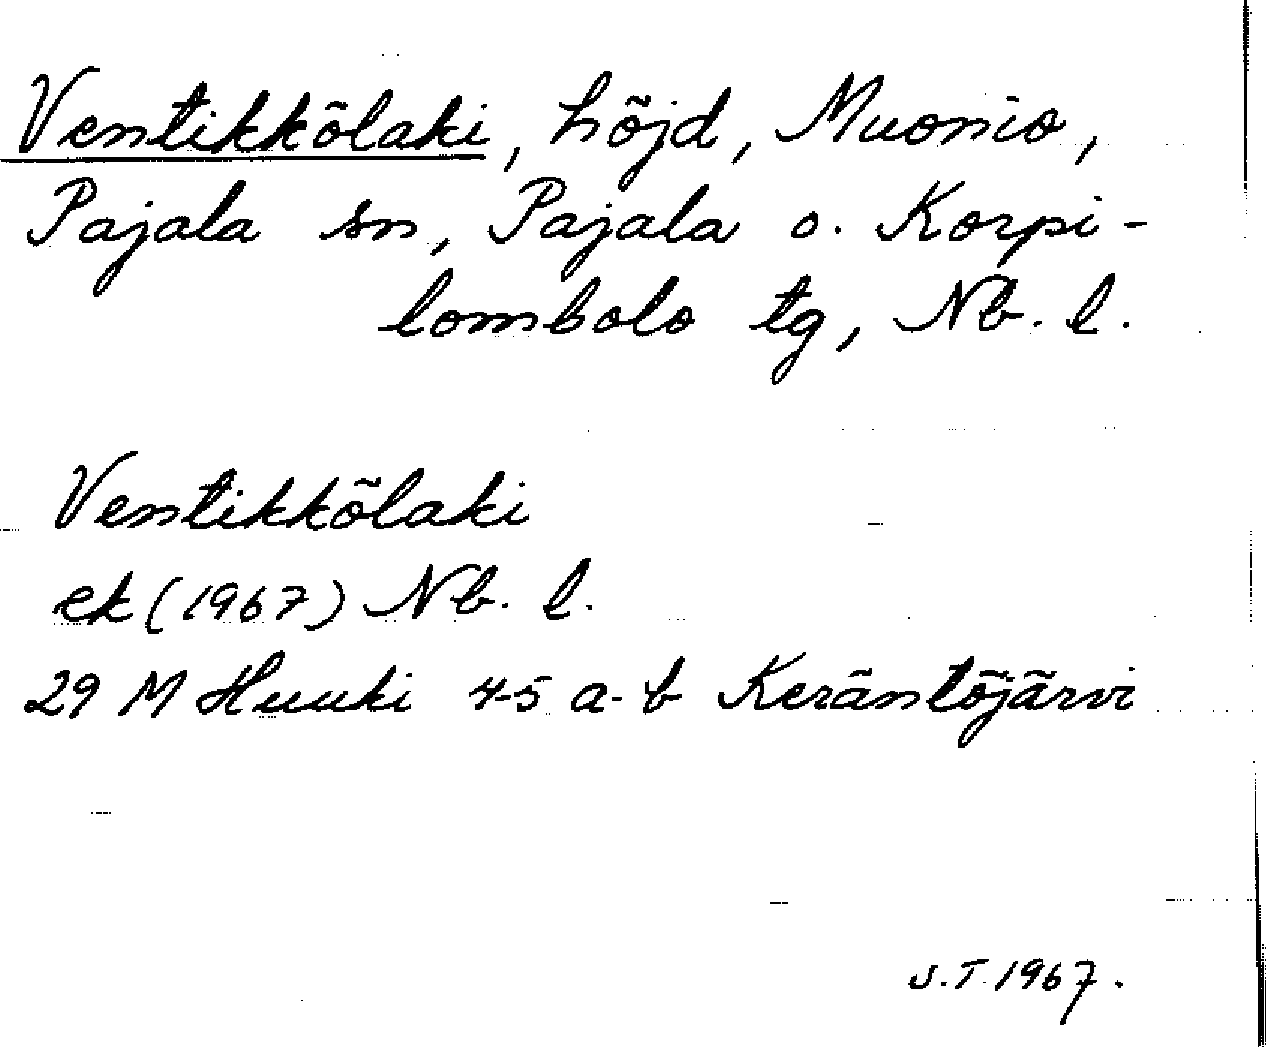 Ventikkölaki, höjd, Muonio,
Pajala sn, Pajala o. Korpi-
lombolo tg, Nb. l.
Ventikkölaki
ek (1967) Nb. l.
29 M Huuki 4-5 a-b Keräntöjärvi
S.T. 1967.